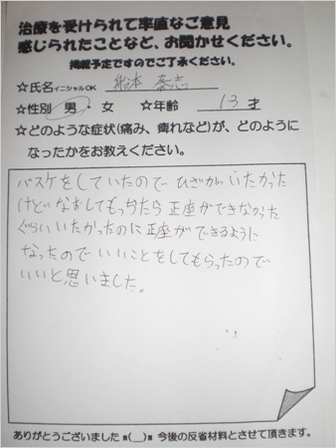 治療を受けられて率直なご意見
感じられたことなど、お聞かせください。
掲載予定ですのでご了承ください。
☆氏名イニシャルOK 船本
☆性別 男・女 ☆年齢 13 才
☆どのような症状(痛み、痺れなど)が、どのように
なったかをお教えください。
バスケをしていたので ひざがいたかった
けどなおしてもらったら 正座ができなかった
ぐらいいたかったのに正座ができるように
なったのでいいことをしてもらったので
いいと思いました。
ありがとうございましたm(__)m 今後の反省材料とさせて頂きます。